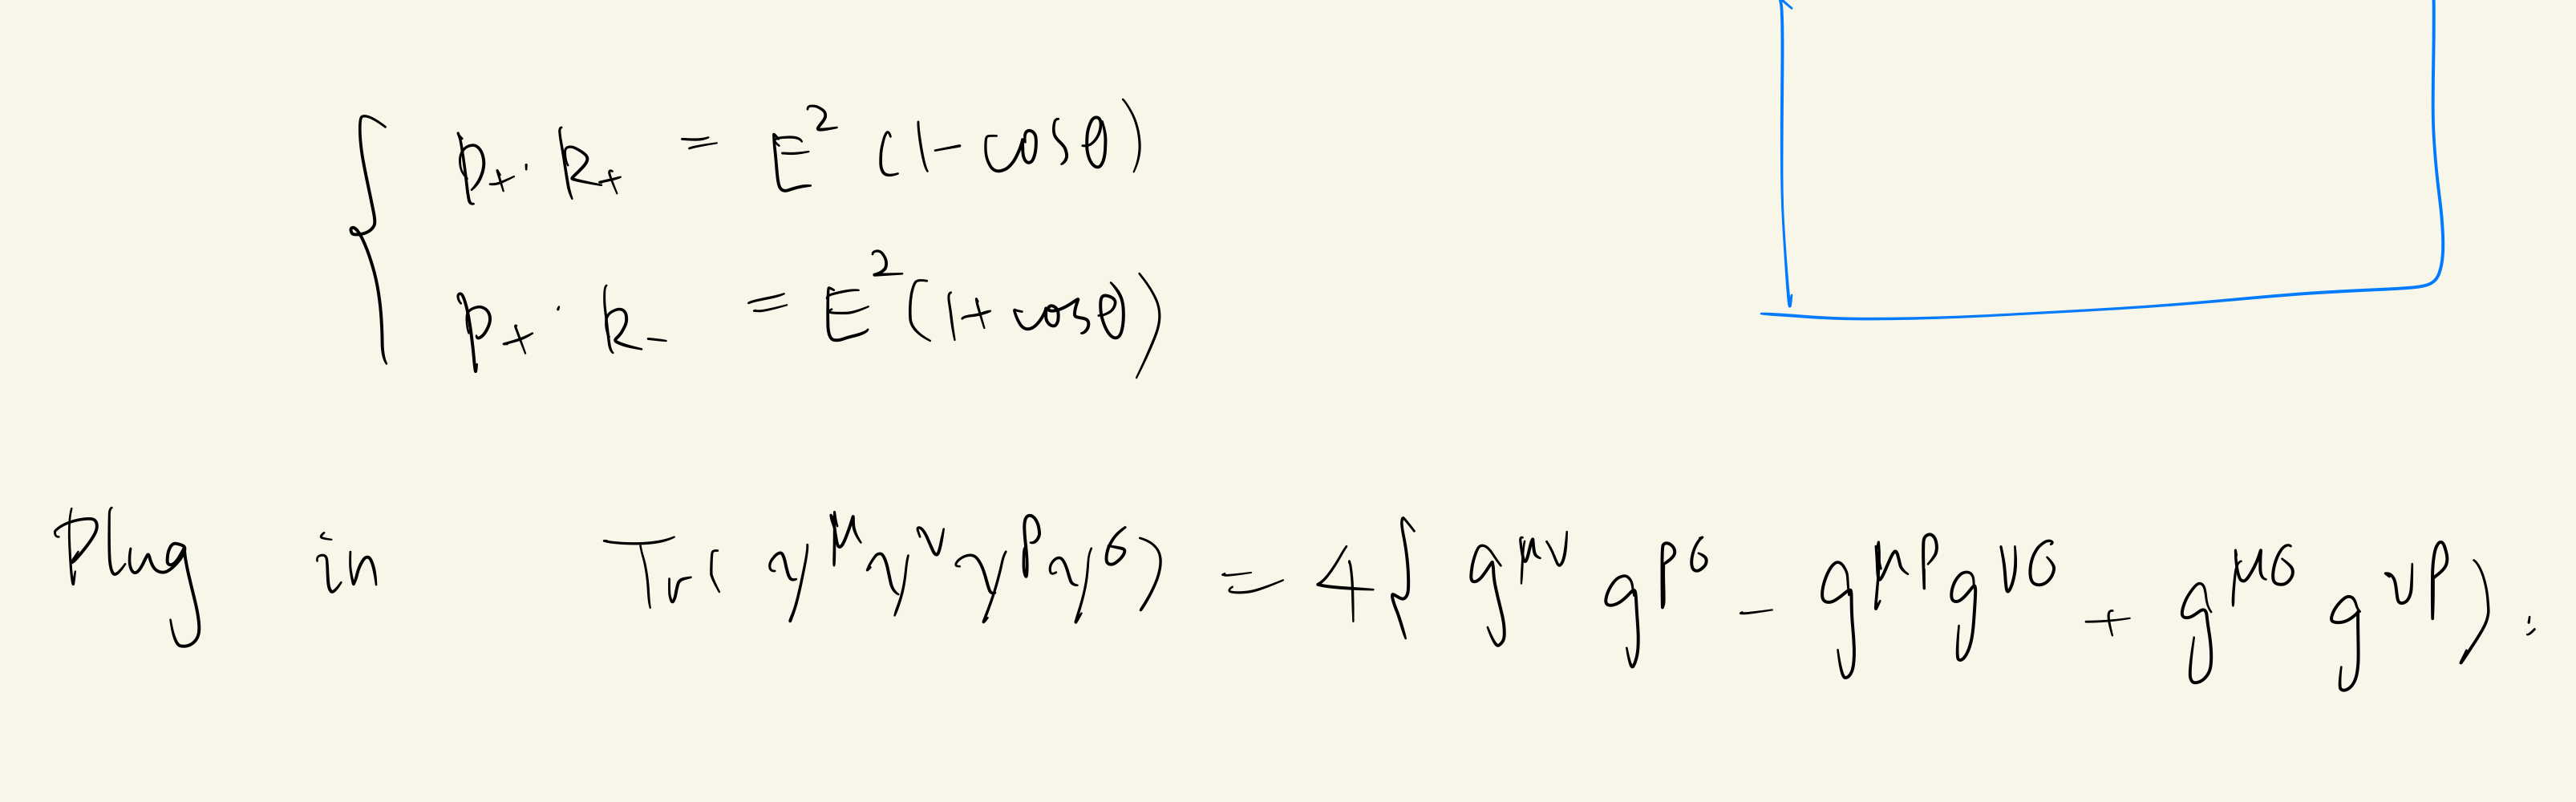 { p₊ · k₊ = E² (1 - cosθ)
p₊ · k₋ = E² (1 + cosθ)
Plug in Tr( γ^μ γ^ν γ^ρ γ^σ ) = 4( g^{μν} g^{ρσ} - g^{μρ} g^{νσ} + g^{μσ} g^{νρ} ) :